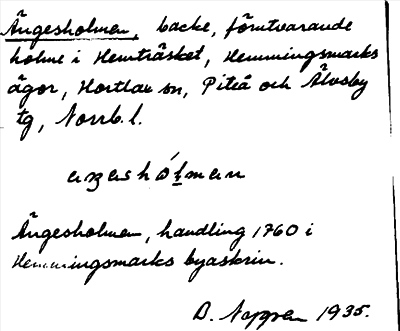 Ängesholmen, backe, förutvarande
holme i Hemträsket, Hemmingsmarks
ägor, Hortlax sn, Piteå och Älvsby
tg, Norrb. l.
aŋashólman
Ängesholmen, handling 1760 i
Hemmingsmarks byaskrin.
D. Nygren 1935.